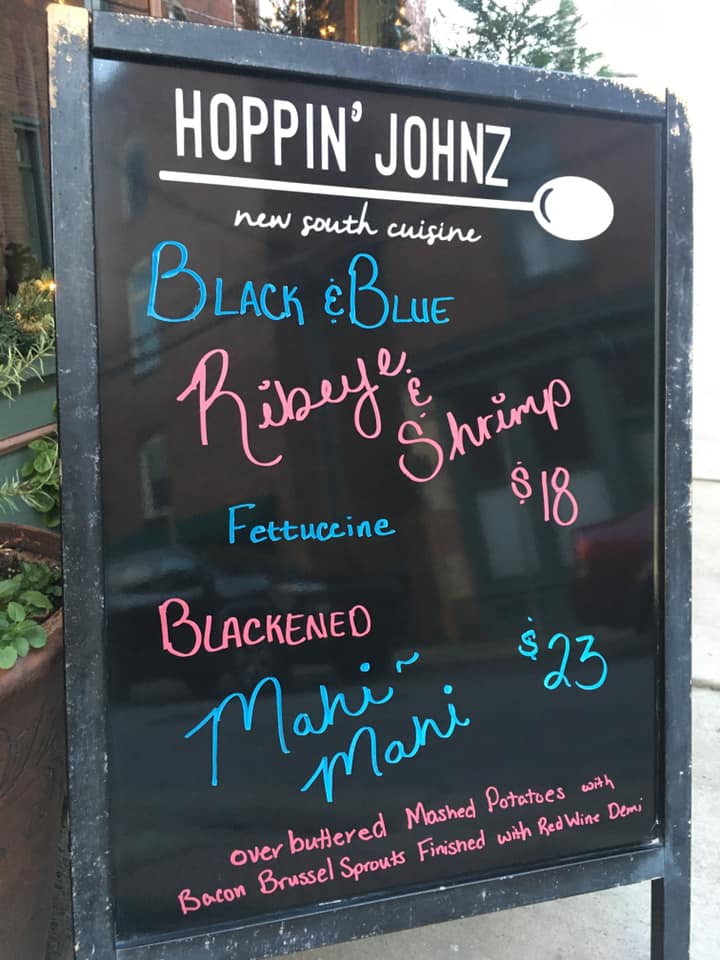 HOPPIN' JOHNZ
new south cuisine
BLACK & BLUE
Ribeye &
Shrimp
$18
Fettuccine
BLACKENED
Mahi~
Mahi
$23
over buttered Mashed Potatoes with
Bacon Brussel Sprouts Finished with Red Wine Demi